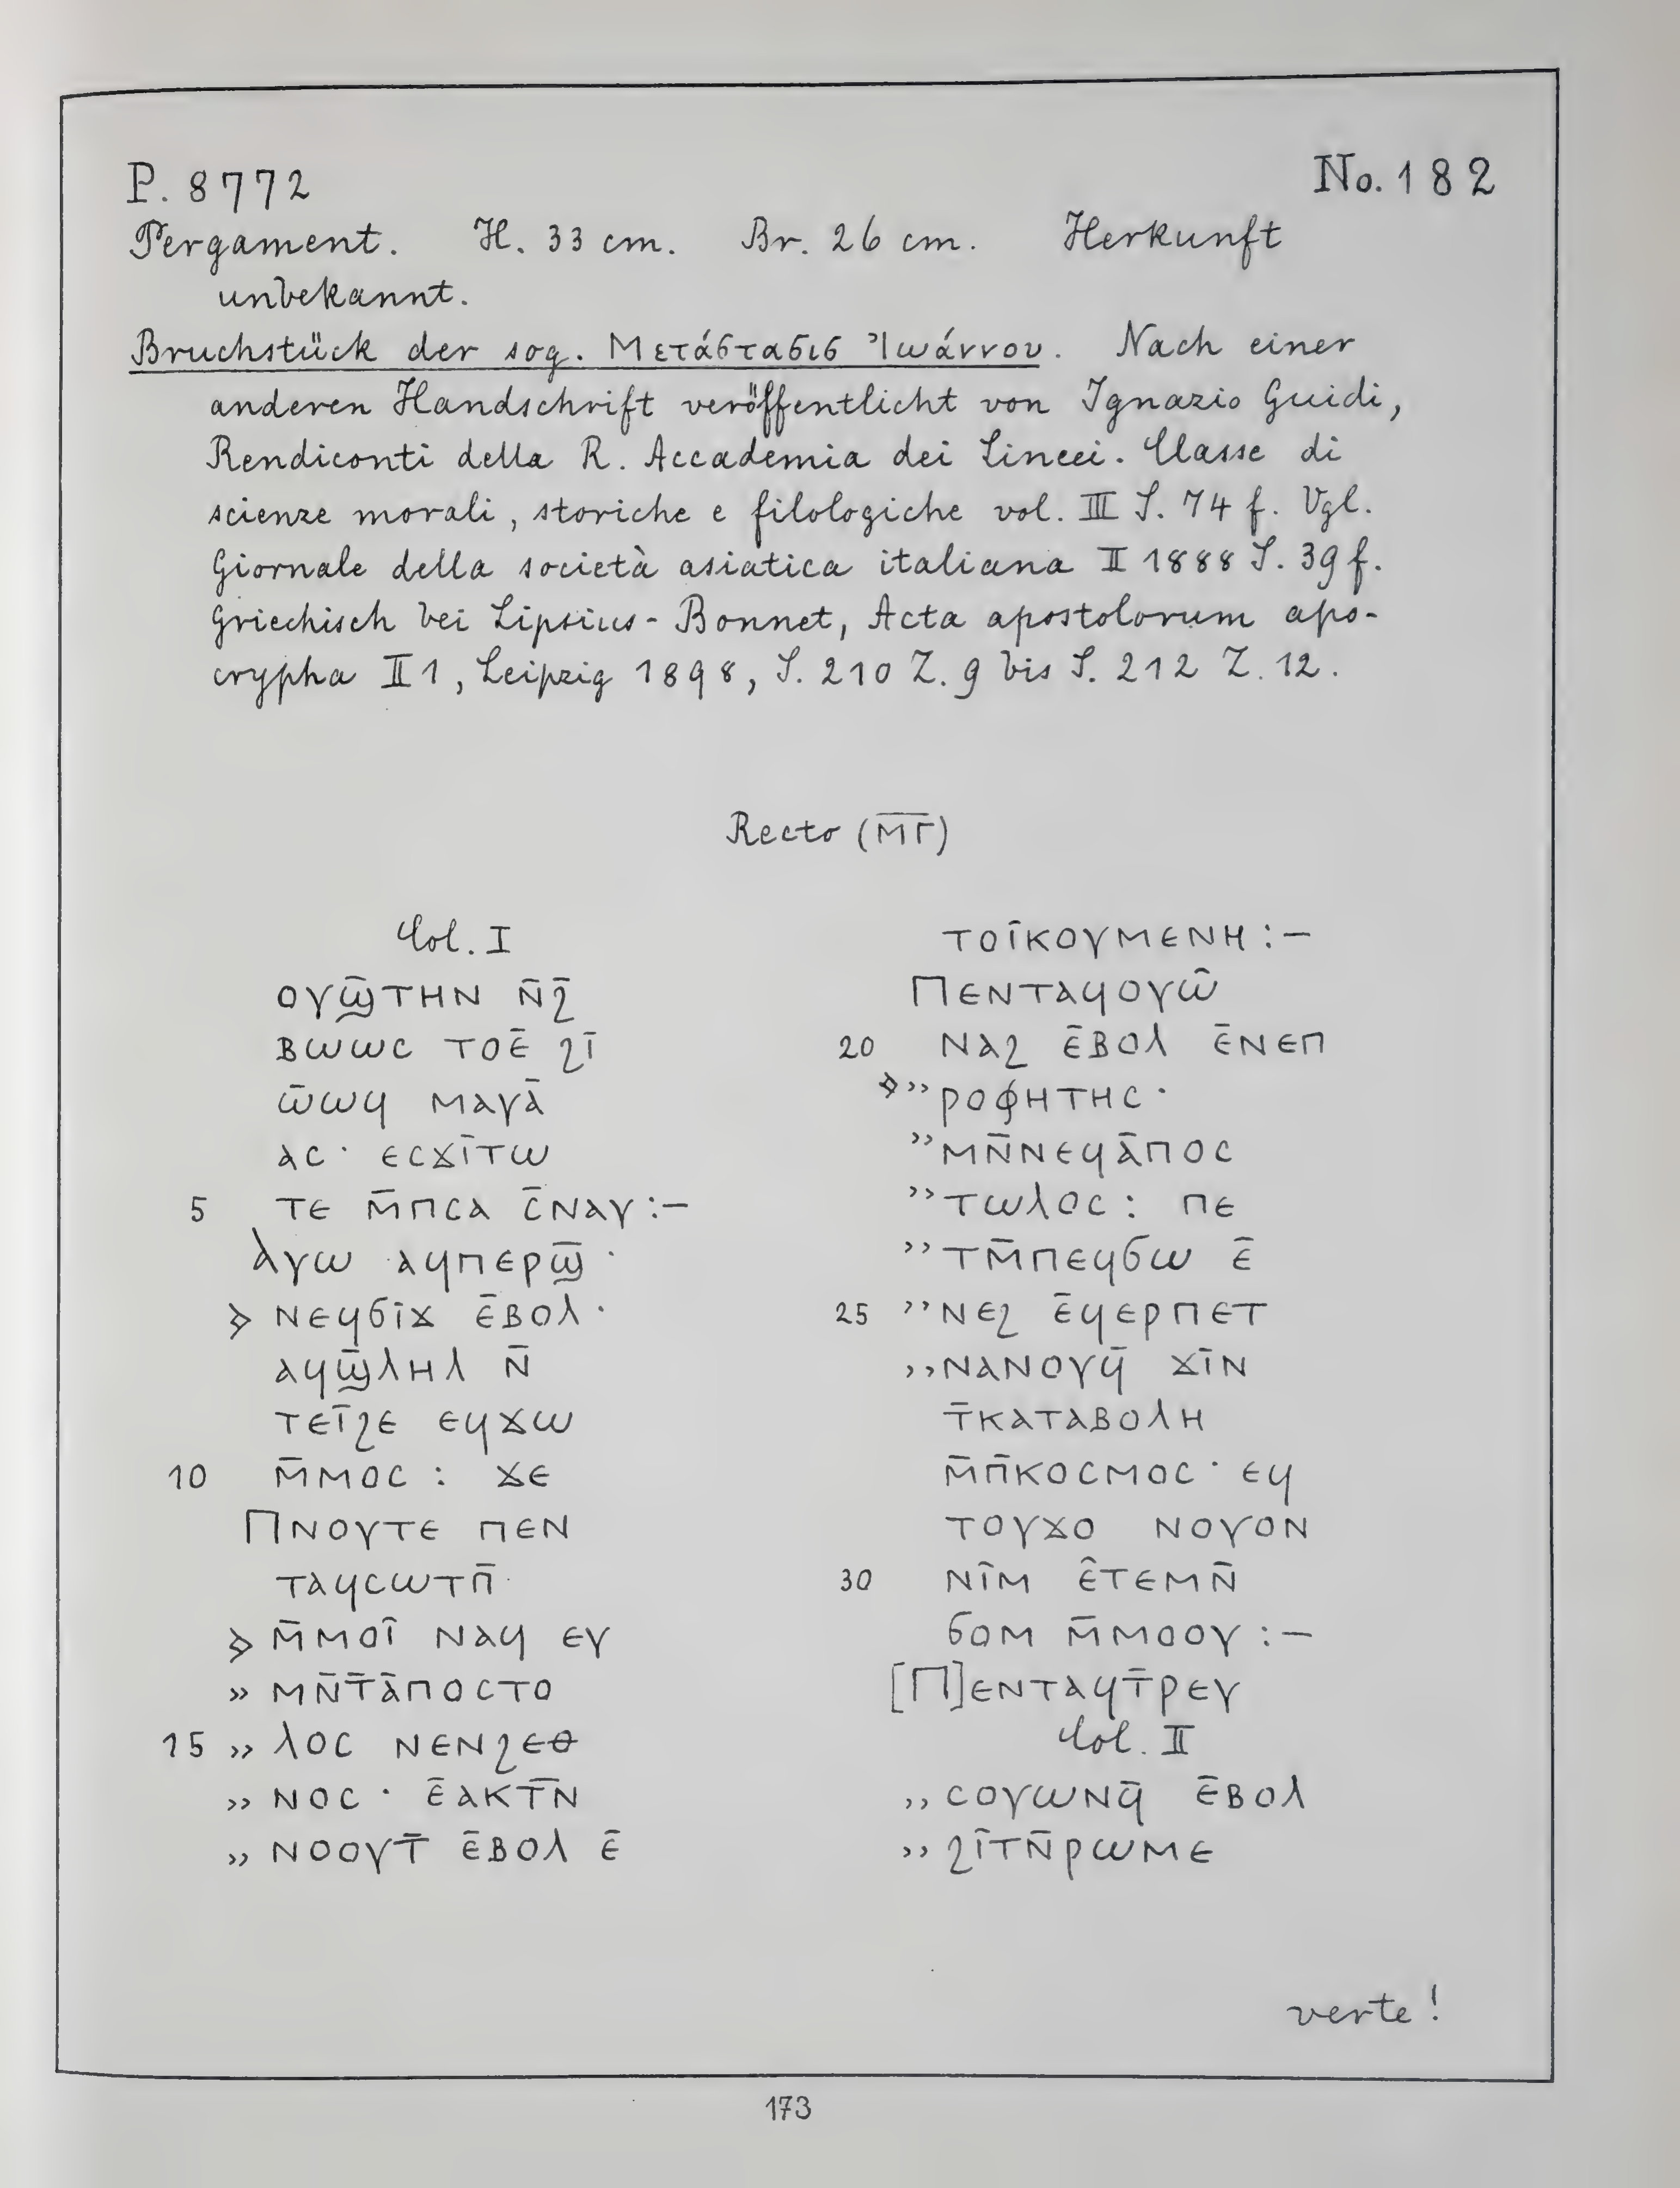 P. 8772
No. 182
Pergament. H. 33 cm. Br. 26 cm. Herkunft
unbekannt.
Bruchstück der sog. Μετάστασις Ἰωάννου. Nach einer
anderen Handschrift veröffentlicht von Ignazio Guidi,
Rendiconti della R. Accademia dei Lincei. Classe di
scienze morali, storiche e filologiche vol. III S. 74 f. Vgl.
Giornale della società asiatica italiana II 1888 S. 39 f.
Griechisch bei Lipsius-Bonnet, Acta apostolorum apo-
crypha II 1, Leipzig 1898, S. 210 Z. 9 bis S. 212 Z. 12.
Recto (ⲙ̅ⲅ̅)
Col. I
ⲟⲩϣ̅ⲧⲏⲛ ⲛ̅ϩ̅
ⲃⲱⲱⲥ ⲧⲟⲉ̅ ϩⲓ̅
ⲱ̅ⲱϥ ⲙⲁⲩⲁ̅
ⲁⲥ· ⲉⲥϫⲓ̅ⲧⲱ
5 ⲧⲉ ⲙ̅ⲡⲥⲁ ⲥ̅ⲛⲁⲩ:–
ⲁⲩⲱ ⲁϥⲡⲉⲣϣ̅·
> ⲛⲉϥϭⲓ̅ϫ ⲉ̅ⲃⲟⲗ·
ⲁϥϣ̅ⲗⲏⲗ ⲛ̅
ⲧⲉⲓ̅ϩⲉ ⲉϥϫⲱ
10 ⲙ̅ⲙⲟⲥ: ϫⲉ
ⲡⲛⲟⲩⲧⲉ ⲡⲉⲛ
ⲧⲁϥⲥⲱⲧⲡ̅
> ⲙ̅ⲙⲟⲓ̂ ⲛⲁϥ ⲉⲩ
» ⲙⲛ̅ⲧ̅ⲁ̅ⲡⲟⲥⲧⲟ
15 » ⲗⲟⲥ ⲛⲉⲛϩⲉⲑ
» ⲛⲟⲥ· ⲉ̅ⲁⲕⲧ̅ⲛ̅
» ⲛⲟⲟⲩⲧ̅ ⲉ̅ⲃⲟⲗ ⲉ̅
ⲧⲟⲓ̂ⲕⲟⲩⲙⲉⲛⲏ:–
ⲡⲉⲛⲧⲁϥⲟⲩⲱ̂
20 ⲛⲁϩ ⲉ̅ⲃⲟⲗ ⲉ̅ⲛⲉⲡ
> » ⲣⲟⲫⲏⲧⲏⲥ·
» ⲙⲛ̅ⲛⲉϥⲁ̅ⲡⲟⲥ
» ⲧⲱⲗⲟⲥ: ⲡⲉ
» ⲧⲙ̅ⲡⲉϥϭⲱ ⲉ̅
25 » ⲛⲉϩ ⲉ̅ϥⲉⲣⲡⲉⲧ
» ⲛⲁⲛⲟⲩϥ̅ ϫⲓ̅ⲛ
ⲧ̅ⲕⲁⲧⲁⲃⲟⲗⲏ
ⲙ̅ⲡ̅ⲕⲟⲥⲙⲟⲥ· ⲉϥ
ⲧⲟⲩϫⲟ ⲛⲟⲩⲟⲛ
30 ⲛⲓ̂ⲙ ⲉ̂ⲧⲉⲙⲛ̅
ϭⲟⲙ ⲙ̅ⲙⲟⲟⲩ:–
[ⲡ]ⲉⲛⲧⲁϥⲧ̅ⲣⲉⲩ
Col. II
» ⲥⲟⲩⲱⲛϥ̅ ⲉ̅ⲃⲟⲗ
» ϩⲓ̅ⲧⲛ̅ⲣⲱⲙⲉ
verte!
173